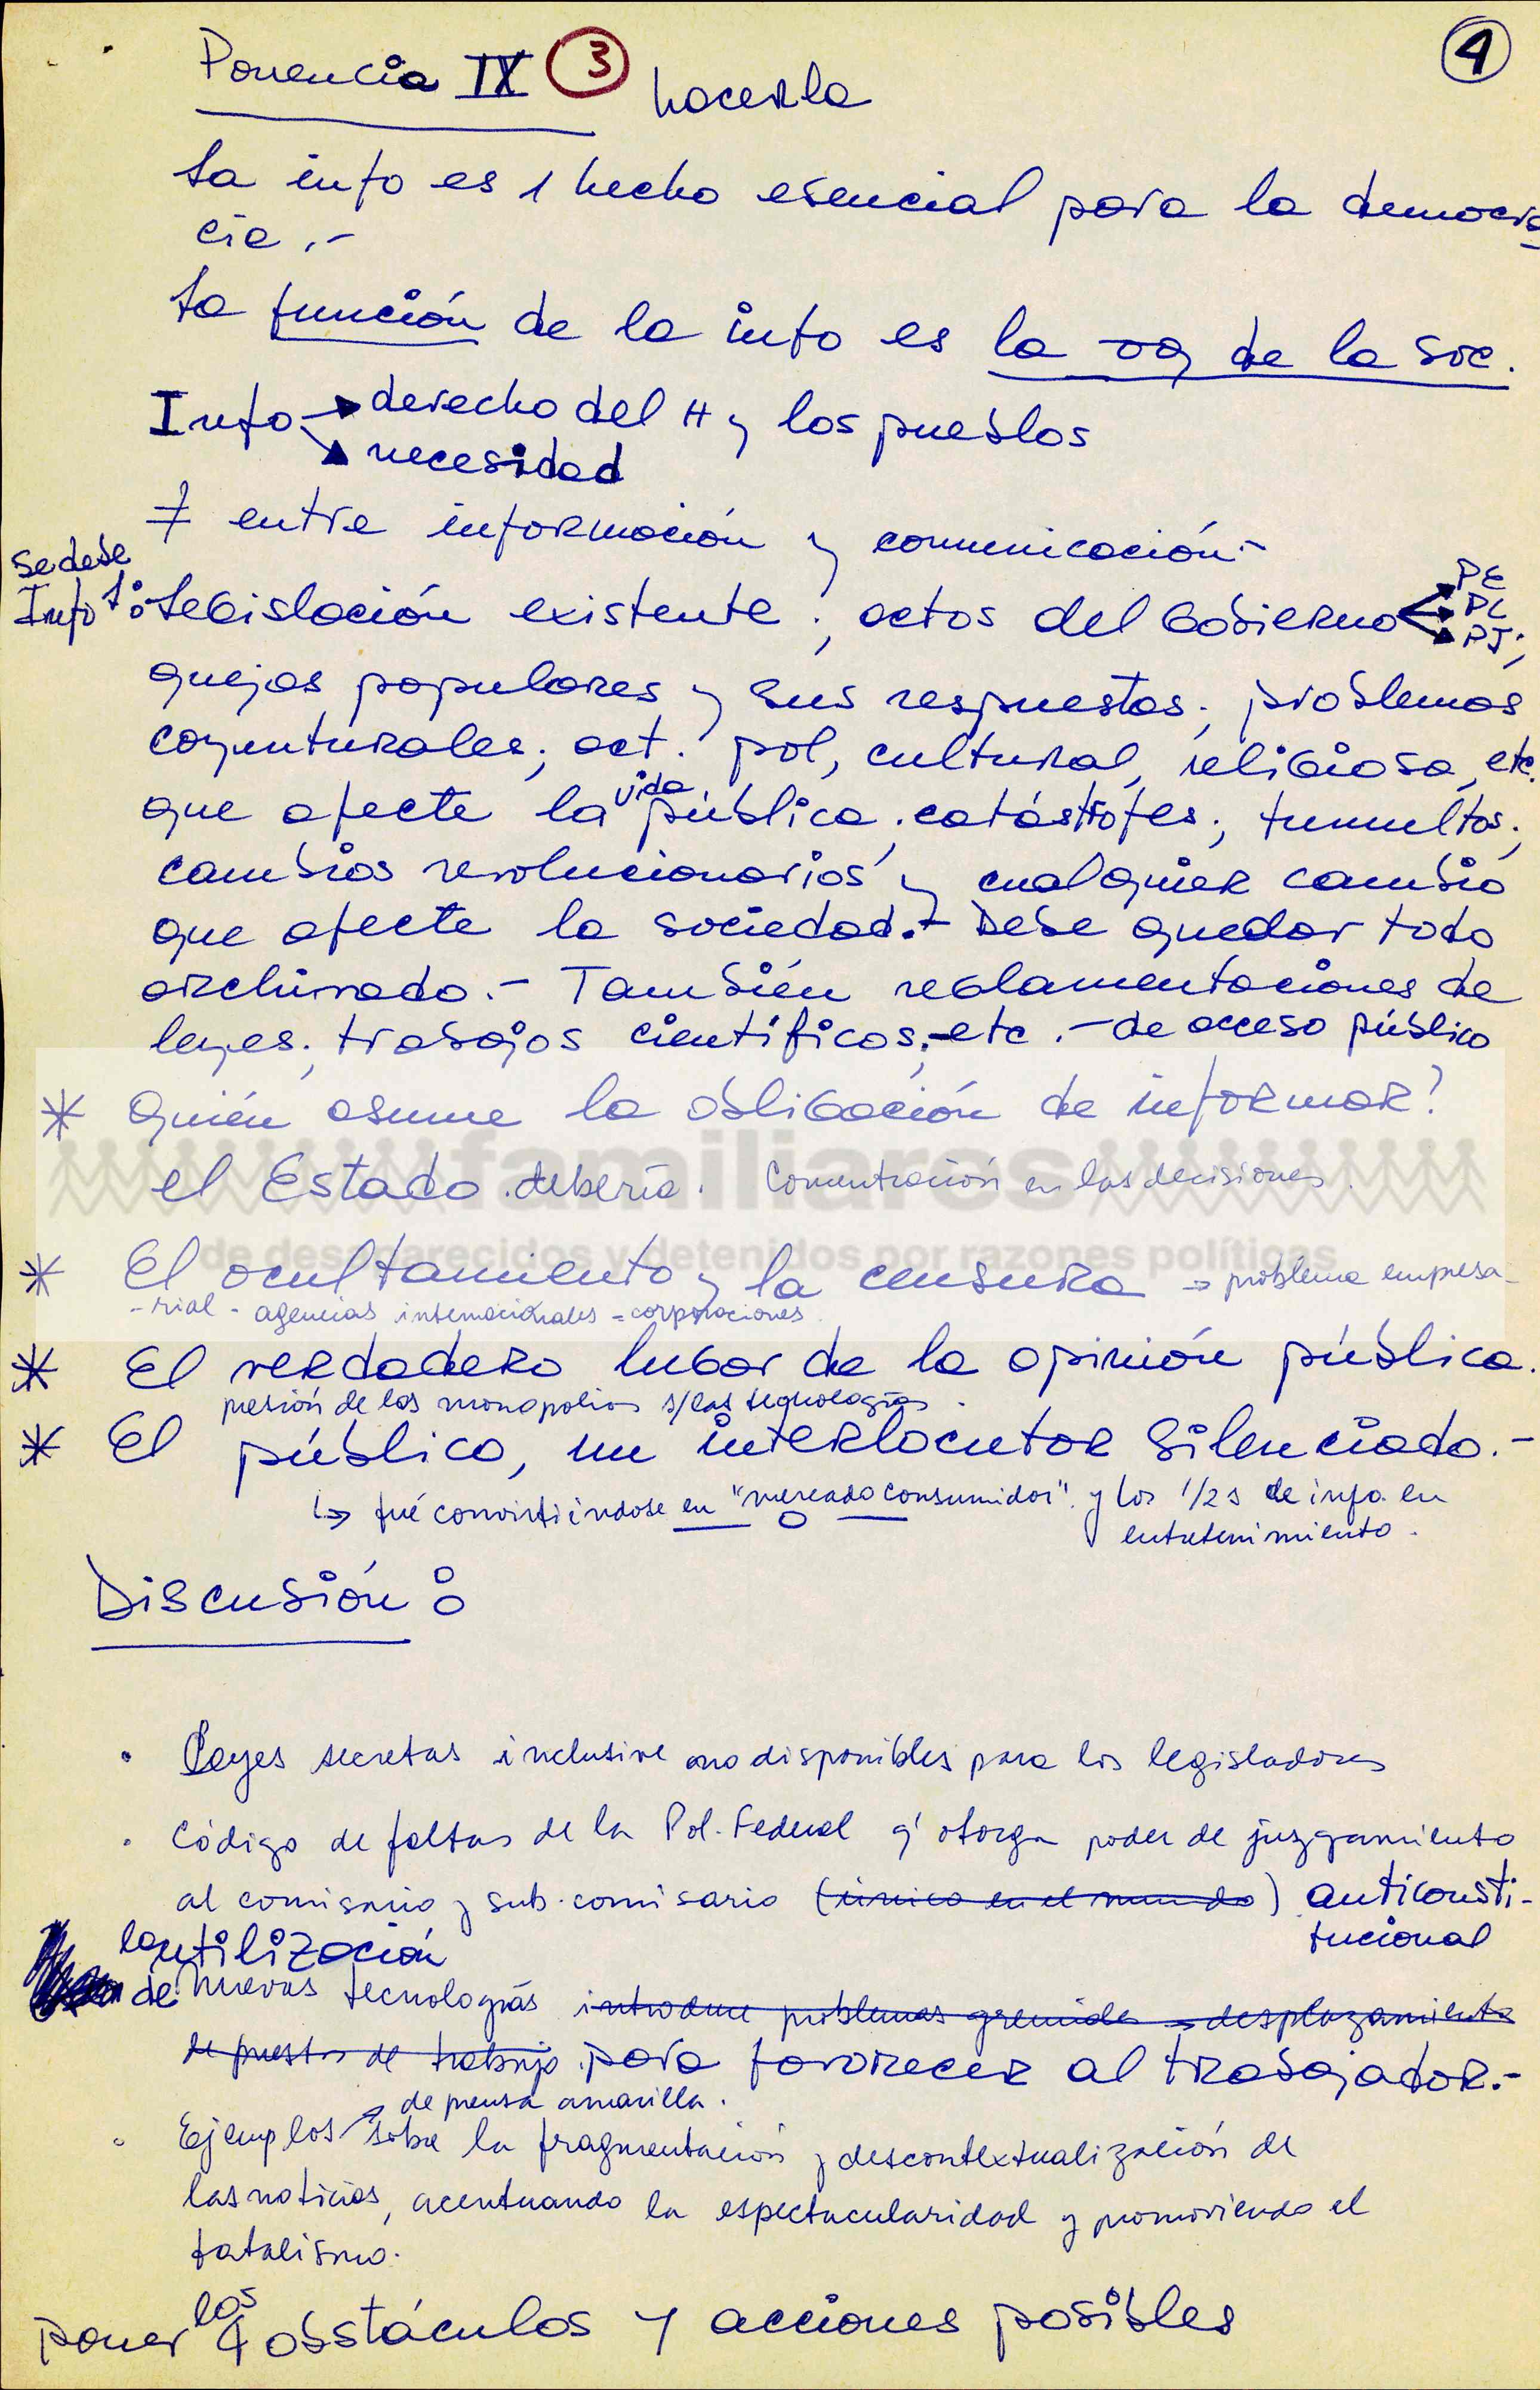 Ponencia IX 3 hacerla
4
La info es 1 hecho esencial para la democra
cia.-
La función de la info es la og de la soc.
Info → derecho del H y los pueblos
→ necesidad
≠ entre información y comunicación.-
se debe
Info s/: Legislación existente; actos del Gobierno PE
PL
PJ;
quejas populares y sus respuestas; problemas
coyunturales; act. pol, cultural, religiosa, etc.
que afecte la vida pública; catástrofes; tumultos;
cambios revolucionarios y cualquier cambio
que afecte la sociedad.- Debe quedar todo
archivado.- También reglamentaciones de
leyes; trabajos científicos; etc.- de acceso público
* Quién asume la obligación de informar?
el Estado debería. Concentración en las decisiones.
familiares
de desaparecidos y detenidos por razones políticas
* El ocultamiento y la censura → problema empresa-
-rial - agencias internacionales = corporaciones.
* El verdadero lugar de la opinión pública.
presión de los monopolios s/las tegnologías.
* El público, un interlocutor silenciado.-
↳ fué convirtiéndose en "mercado consumidor" y los 1/2s de info. en
entretenimiento.
Discusión:
• Leyes secretas inclusive no disponibles para los legisladores
• Código de faltas de la Pol. Federal q' otorga poder de juzgamiento
al comisario y sub-comisario (único en el mundo) anticonsti-
tucional
la utilización
de nuevas tecnologías introduce problemas gremiales → desplazamiento
de puestos de trabajo para favorecer al trabajador.-
→ de prensa amarilla.
• Ejemplos sobre la fragmentación y descontextualización de
las noticias, acentuando la espectacularidad y promoviendo el
fatalismo.
Poner los 4 obstáculos y acciones posibles